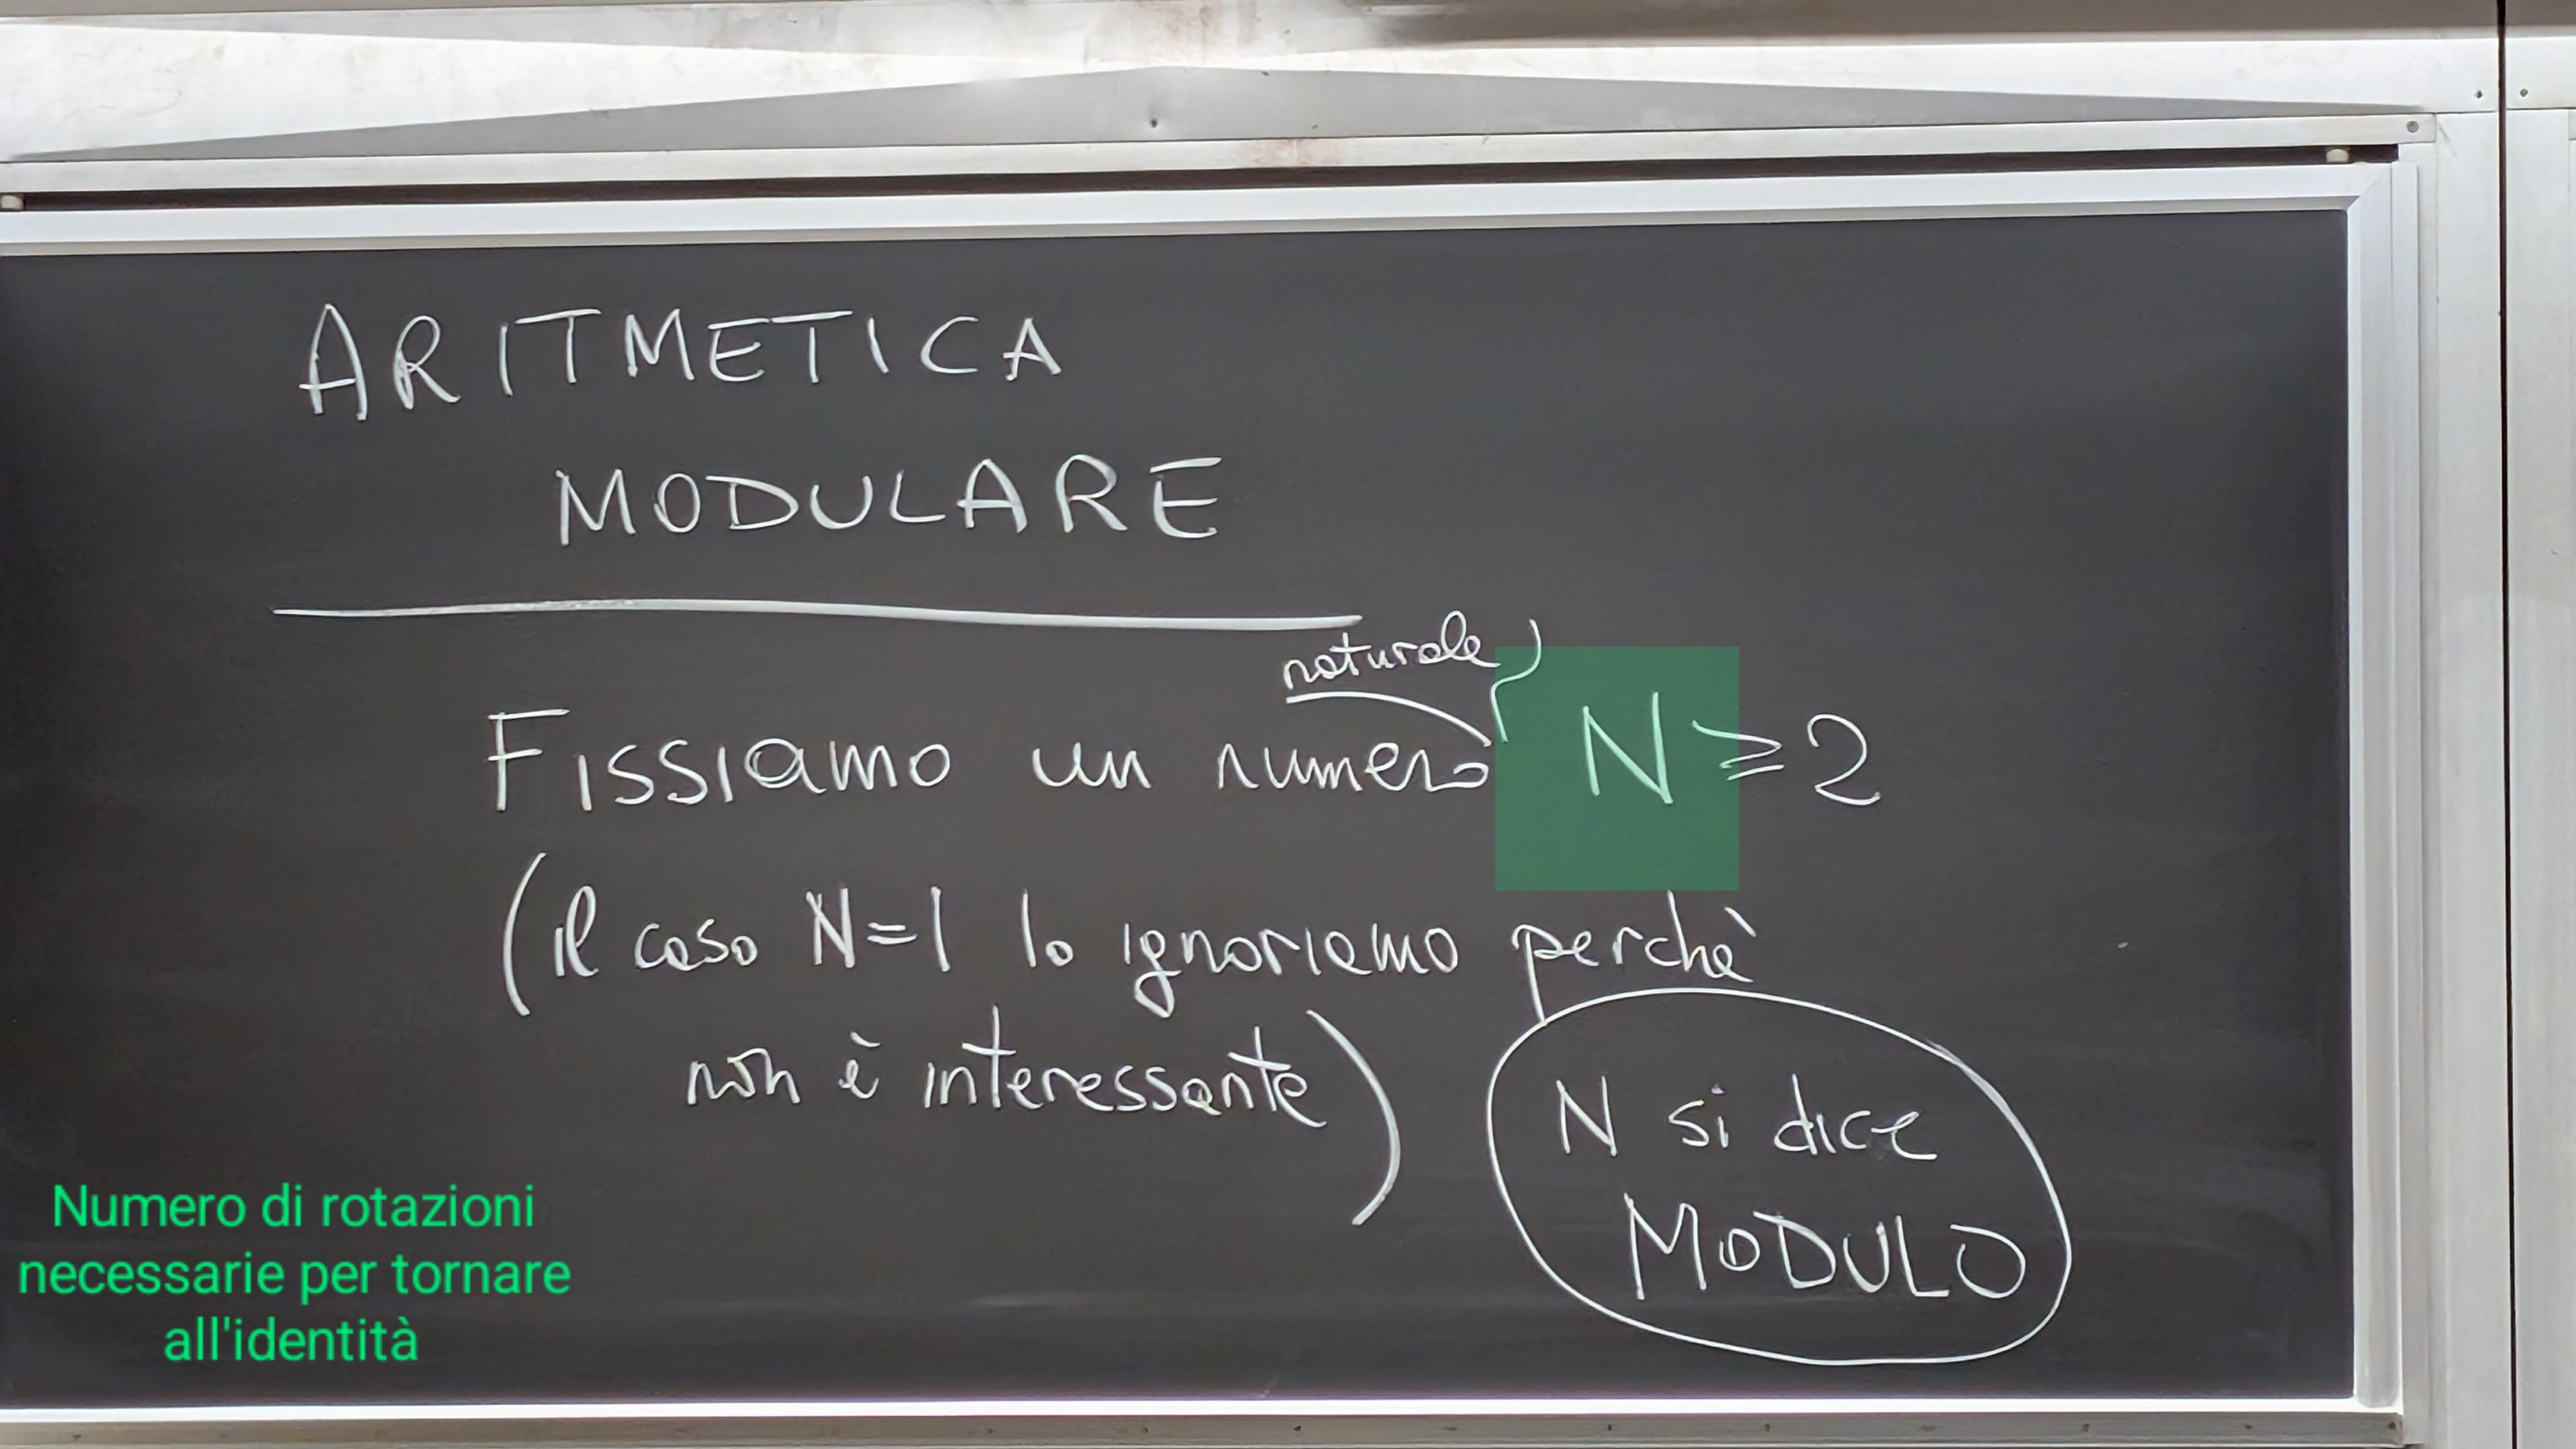 ARITMETICA
MODULARE
naturale
Fissiamo un numero N ≥ 2
(il caso N=1 lo ignoriamo perchè
non è interessante)
N si dice
MODULO
Numero di rotazioni
necessarie per tornare
all'identità